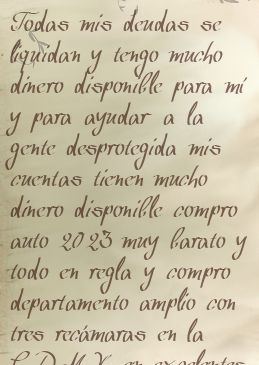 Todas mis deudas se
liquidan y tengo mucho
dinero disponible para mí
y para ayudar a la
gente desprotegida mis
cuentas tienen mucho
dinero disponible compro
auto 2023 muy barato y
todo en regla y compro
departamento amplio con
tres recámaras en la